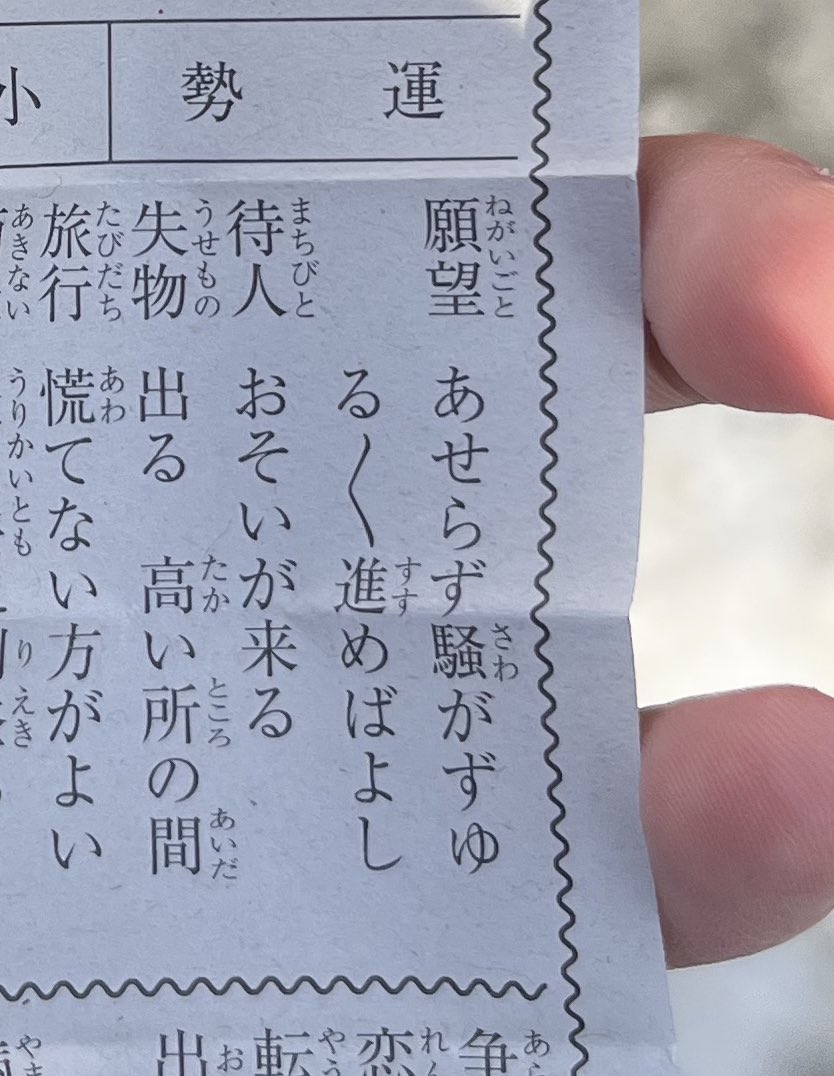 運勢
小
願望 あせらず騒がずゆ
ねがいごと さわ
る〱進めばよし
すす
待人 おそいが来る
まちびと
失物 出る 高い所の間
うせもの たか ところ あいだ
旅行 慌てない方がよい
たびだち あわ
あきない うりかいとも りえき
争
あら
恋
れん
転
やう
出
お
やま